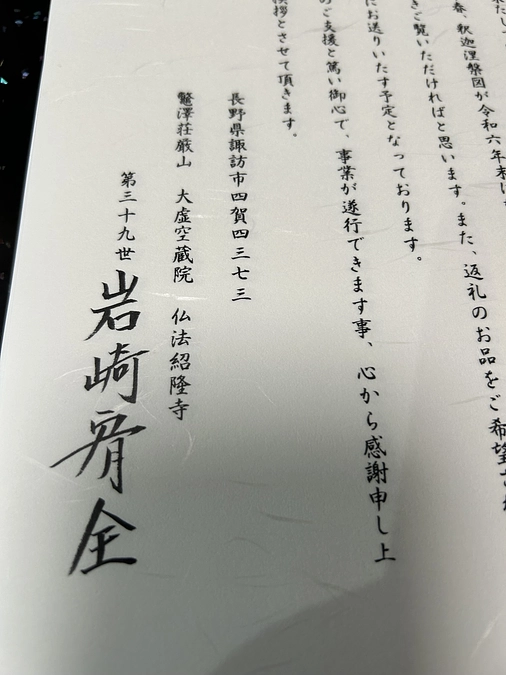 春、釈迦涅槃図が令和六年末に
ご覧いただければと思います。また、返礼のお品をご希望され
にお送りいたす予定となっております。
のご支援と篤い御心で、事業が遂行できます事、心から感謝申し上
挨拶とさせて頂きます。
長野県諏訪市四賀四三七三
鼈澤荘厳山　大虚空蔵院　仏法紹隆寺
第三十九世 岩崎宥全